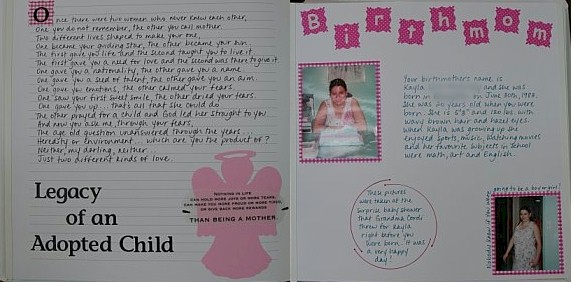 Once there were two women who never knew each other,
One you do not remember, the other you call mother.
Two different lives shaped to make your one,
One became your guiding star, the other became your sun.
The first gave you life and the second taught you to live it.
The first gave you a need for love and the second was there to give it.
One gave you a nationality, the other gave you a name.
One gave you a seed of talent, the other gave you an aim.
One gave you emotions, the other calmed your fears.
One saw your first sweet smile, the other dried your tears.
One gave you up... that's all that she could do.
The other prayed for a child and God led her straight to you.
And now you ask me, through your tears,
The age old question unanswered through the years...
Heredity or environment... which are you the product of?
Neither, my darling, neither.
Just two different kinds of love.
Legacy
of an
Adopted Child
NOTHING IN LIFE
CAN HOLD MORE JOYS OR MORE TEARS,
CAN MAKE YOU MORE PROUD OR MORE TIRED,
OR GIVE BACK MORE REWARDS
THAN BEING A MOTHER.
Birthmom
Your birthmother's name is
Kayla and she was
born in on June 20th, 1983.
She was 20 years old when you were
born. She is 5'8" and 130 lbs. with
wavy brown hair and hazel eyes.
When Kayla was growing up she
enjoyed sports, music, watching movies
and her favourite subjects in school
were math, art and English.
These pictures
were taken at the
surprise baby shower
that Grandma Cordi
threw for Kayla
right before you
were born. It was
a very happy
day!
Nobody knew if you were
going to be a boy or girl!